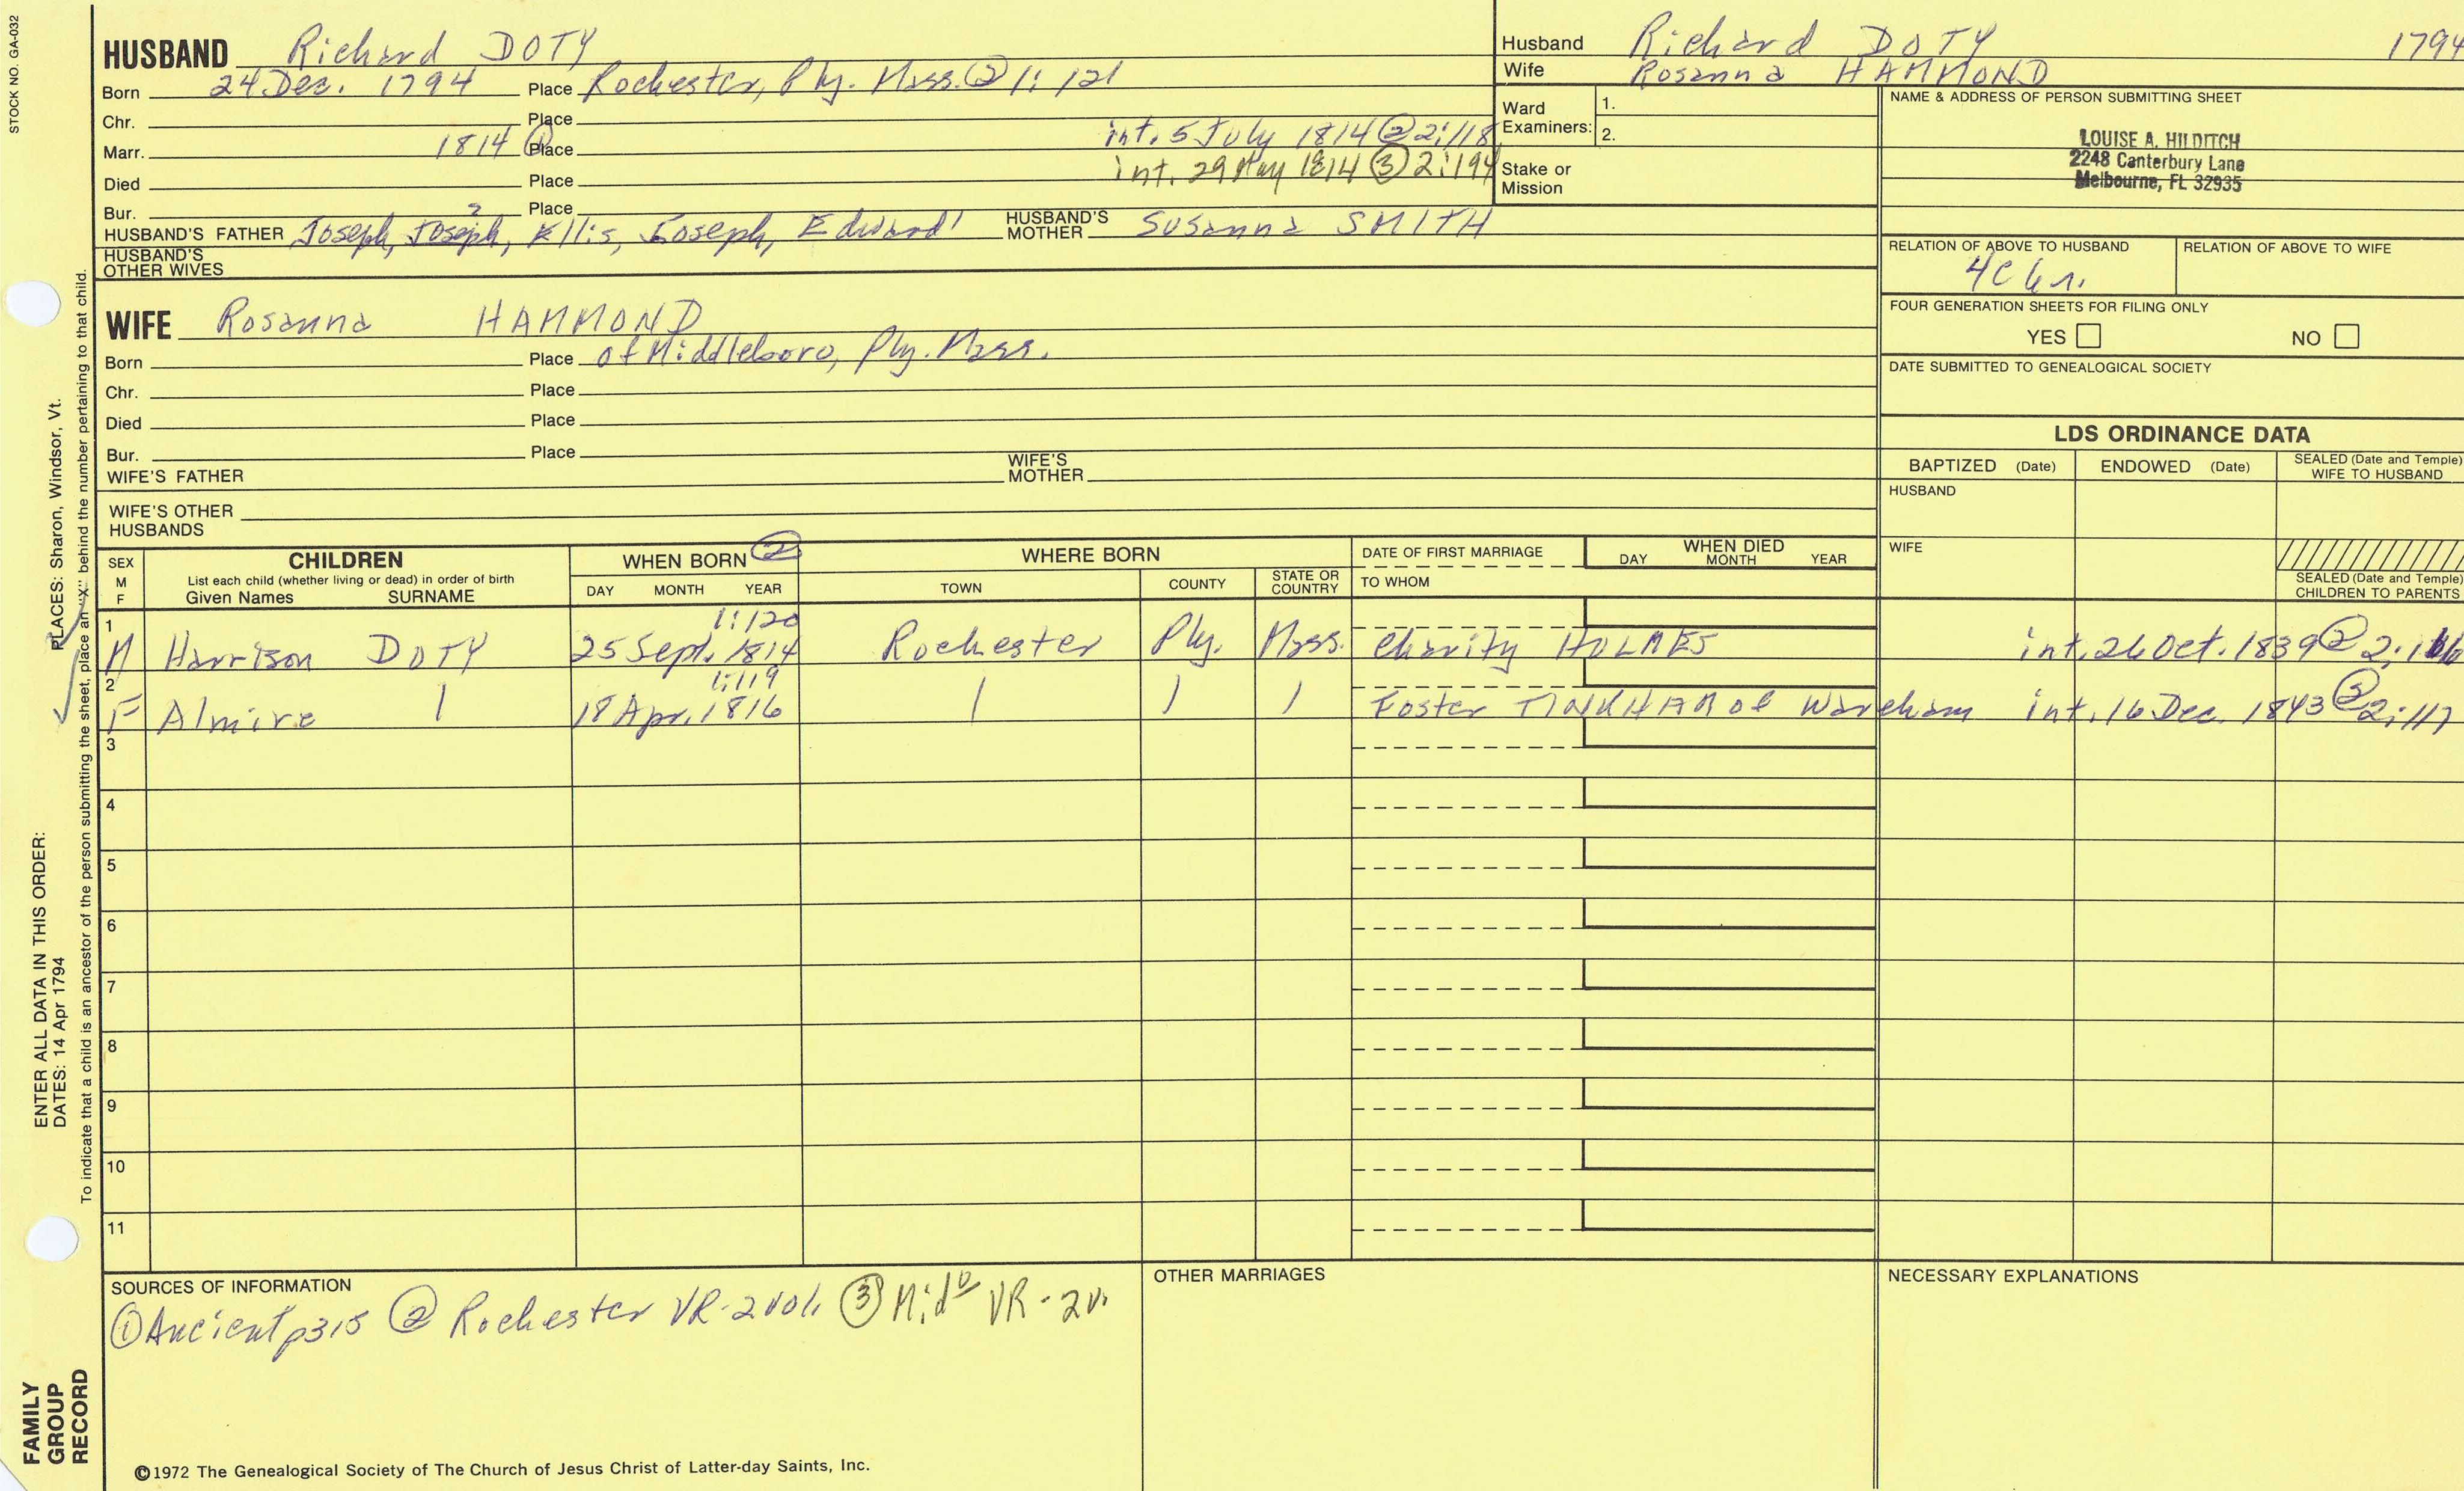 STOCK NO. GA-032
HUSBAND Richard DOTY
Born 24 Dec. 1794 Place Rochester, Ply. Mass. ② 1:121
Chr. Place
Marr. 1814 ① Place int. 5 July 1814 ② 2:118
Died Place int. 29 May 1814 ③ 2:194
Bur. Place
HUSBAND'S FATHER Joseph, Joseph, Ellis, Joseph, Edward HUSBAND'S MOTHER Susanna SMITH
HUSBAND'S OTHER WIVES
Husband Richard DOTY 1794
Wife Rosanna HAMMOND
Ward Examiners: 1.
2.
Stake or Mission
NAME & ADDRESS OF PERSON SUBMITTING SHEET
LOUISE A. HILDITCH
2248 Canterbury Lane
Melbourne, FL 32935
RELATION OF ABOVE TO HUSBAND RELATION OF ABOVE TO WIFE
4C 6r.
FOUR GENERATION SHEETS FOR FILING ONLY
YES NO
DATE SUBMITTED TO GENEALOGICAL SOCIETY
WIFE Rosanna HAMMOND
Born Place of Middleboro, Ply. Mass.
Chr. Place
Died Place
Bur. Place
WIFE'S FATHER WIFE'S MOTHER
WIFE'S OTHER HUSBANDS
LDS ORDINANCE DATA
BAPTIZED (Date) ENDOWED (Date) SEALED (Date and Temple) WIFE TO HUSBAND
HUSBAND
WIFE
SEALED (Date and Temple) CHILDREN TO PARENTS
SEX M F
CHILDREN
List each child (whether living or dead) in order of birth
Given Names SURNAME
WHEN BORN ②
DAY MONTH YEAR
WHERE BORN
TOWN COUNTY STATE OR COUNTRY
DATE OF FIRST MARRIAGE
TO WHOM
WHEN DIED
DAY MONTH YEAR
1:120
1 M Harrison DOTY 25 Sept. 1814 Rochester Ply. Mass. Charity HOLMES int. 26 Oct. 1839 ② 2:116
1:119
2 F Almira 18 Apr. 1816 Foster TINKHAM of Wareham int. 16 Dec. 1843 ② 2:117
3
4
5
6
7
8
9
10
11
SOURCES OF INFORMATION
① Ancient p315 ② Rochester VR-2vol. ③ Mid° VR-2v.
OTHER MARRIAGES
NECESSARY EXPLANATIONS
©1972 The Genealogical Society of The Church of Jesus Christ of Latter-day Saints, Inc.
FAMILY GROUP RECORD
ENTER ALL DATA IN THIS ORDER:
DATES: 14 Apr 1794 PLACES: Sharon, Windsor, Vt.
To indicate that a child is an ancestor of the person submitting the sheet, place an "X" behind the number pertaining to that child.